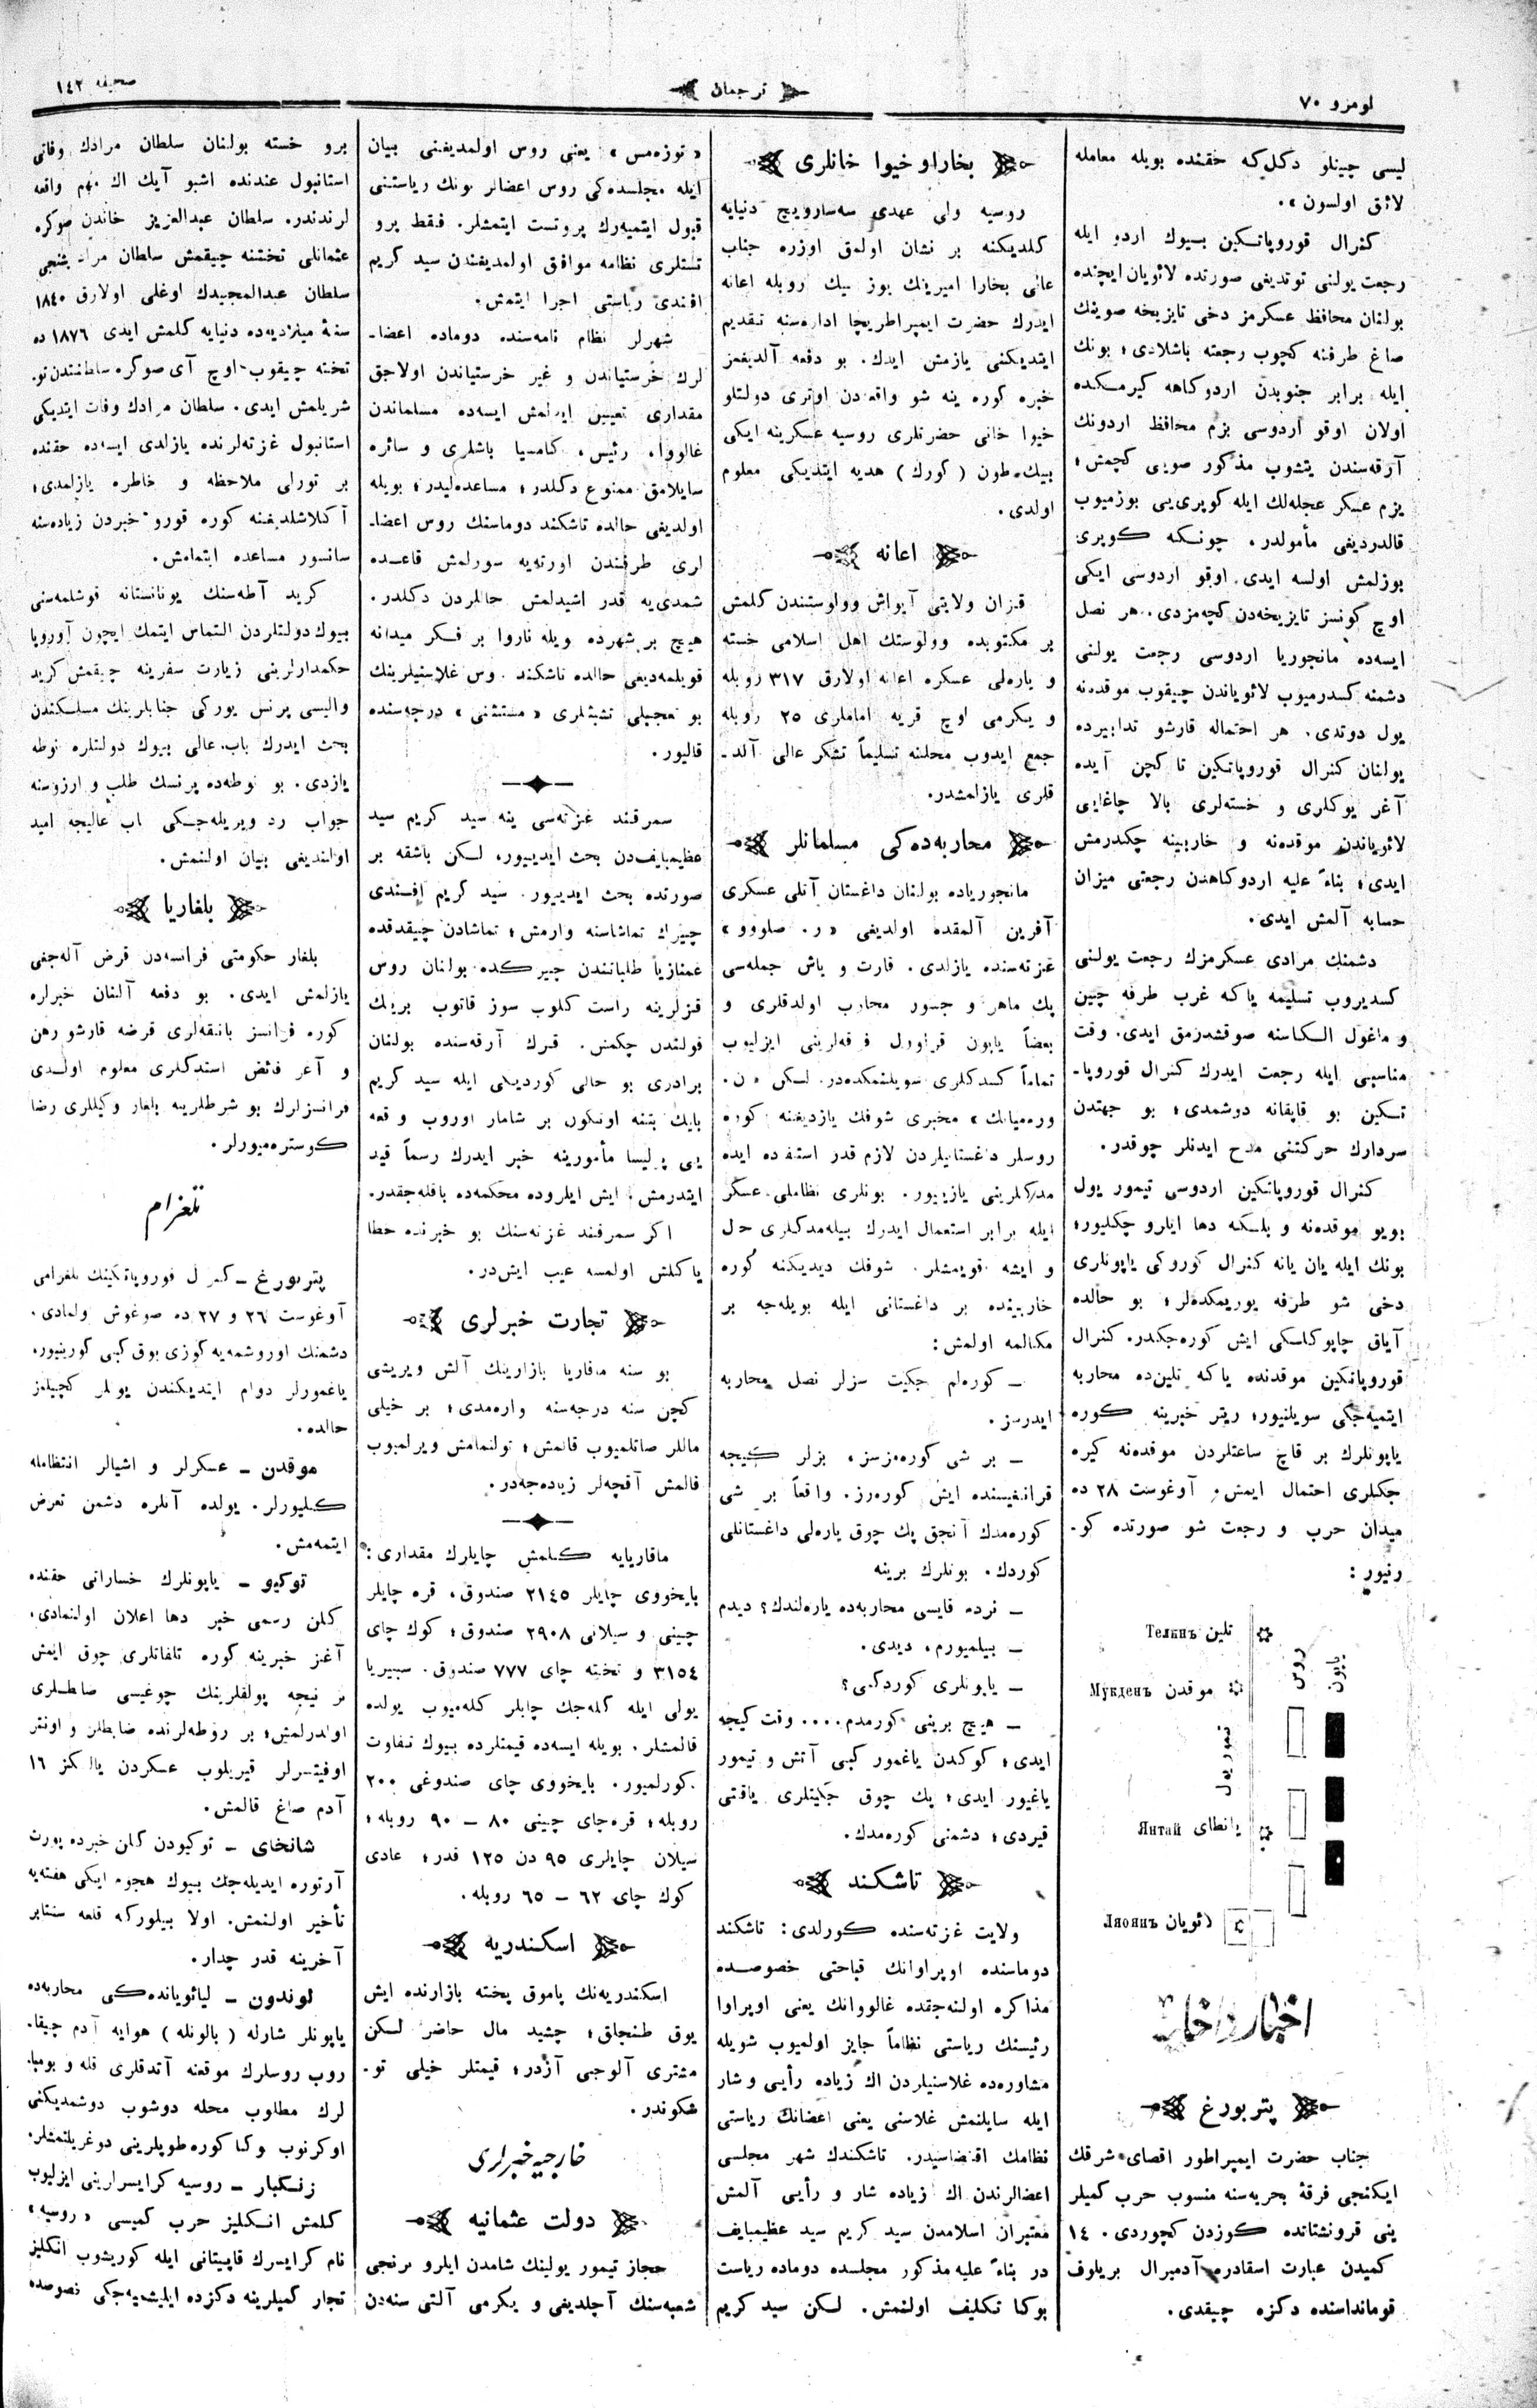 نومرو ٧٠
ترجمان
صحیفه ١٤٢
لیسی چینلو دكل‌كه حقنده بویله معامله
لائق اولسون».
كنرال قوروپاتكین بیوك اردو ایله
رجعت یولنی توتدیغی صورتده لائویان ایچنده
بولنان محافظ عسكرمز دخی تایزیخه صوینك
صاغ طرفنه كچوب رجعته باشلادی؛ بونك
ایله برابر جنوبدن اردوكاهه كیرمكده
اولان اوقو اردوسی بزم محافظ اردونك
آرقه‌سندن یتشوب مذكور صویی كچمش؛
بزم عسكر عجله‌لك ایله كوپری‌یی بوزمیوب
قالدردیغی مأمولدر. چونكه كوپری
بوزلمش اولسه ایدی، اوقو اردوسی ایكی
اوچ كونسز تایزیخه‌دن كچه‌مزدی. هر نصل
ایسه‌ده مانجوریا اردوسی رجعت یولنی
دشمنه كسدرمیوب لائویاندن چیقوب موقدەنه
یول دوتدی. هر احتماله قارشو تدابیرده
بولنان كنرال قوروپاتكین تا كچن آیده
آغر یوكلری و خسته‌لری بالا چاغایی
لائویاندن موقدەنه و خاربینه چكدرمش
ایدی؛ بناءً علیه اردوكاهدن رجعتی میزان
حسابه آلمش ایدی.
دشمنك مرادی عسكرمزك رجعت یولنی
كسدیروب تسلیمه یاكه غرب طرفه چین
و ماغول الكاسنه صوقشدرمق ایدی. وقت
مناسبی ایله رجعت ایدرك كنرال قوروپا-
تكین بو قاپقانه دوشمدی؛ بو جهتدن
سردارك حركتنی مدح ایدنلر چوقدر.
كنرال قوروپاتكین اردوسی تیمور یول
بویو موقدەنه و بلكه دها ایلرو چكلیور؛
بونك ایله یان یانه كنرال كوروكی یاپونلری
دخی شو طرفه یوریمكده‌لر؛ بو حالده
آیاق چاپوكلسكی ایش كوره‌جكدر. كنرال
قوروپاتكین موقدنده یاكه تلین‌ده محاربه
ایتمیه‌جكی سویلنیور؛ ریتر خبرینه كوره
یاپونلرك بر قاچ ساعتلردن موقدەنه كیره
جكلری احتمال ایمش. آوغوست ٢٨ ده
میدان حرب و رجعت شو صورتده كو-
رنیور:
تلین Телинъ
موقدن Мукденъ
یانطای Янтай
لائویان Ляоянъ
تیمور یول
روس
یاپون
اخبار داخلیه
پتربورغ
جناب حضرت ایمپراطور اقصای شرقك
ایكنجی فرقهٔ بحریه‌سنه منسوب حرب كمیلر
ینی قرونشتانده كوزدن كچوردی. ١٤
كمیدن عبارت اسقادره آدمیرال بریلوف
قومانداسنده دكزه چیقدی.
بخارا و خیوا خانلری
روسیه ولی عهدی سه‌سارویچ دنیایه
كلدیكنه بر نشان اولمق اوزره جناب
عالی بخارا امیرینك یوز بیك روبله اعانه
ایدرك حضرت ایمپراطریچا اداره‌سنه تقدیم
ایتدیكنی یازمش ایدك. بو دفعه آلدیغمز
خبره كوره ینه شو واقعه‌دن اوتری دولتلو
خیوا خانی حضرتلری روسیه عسكرینه ایكی
بیك طون (كورك) هدیه ایتدیكی معلوم
اولدی.
اعانه
قزان ولایتی آیواش وولوستندن كلمش
بر مكتوبده وولوستك اهل اسلامی خسته
و یاره‌لی عسكره اعانه اولارق ٣١٧ روبله
و یكرمی اوچ قریه اماملری ٢٥ روبله
جمع ایدوب محلنه تسلیماً تشكر عالی آلد-
قلری یازلمشدر.
محاربه‌ده‌كی مسلمانلر
مانجوریاده بولنان داغستان آتلی عسكری
آفرین آلمقده اولدیغی «ر. صلووو»
غزته‌سنده یازلدی. قارت و یاش جمله‌سی
پك ماهر و جسور محارب اولدقلری و
بعضاً یاپون قراوول فرقه‌لرینی ایزلیوب
تماماً كسدكلری سویلنمكده‌در. لسكن «ن.
وره‌میانك» مخبری شوفك یازدیغنه كوره
روسلر داغستانیلردن لازم قدر استفاده ایده
مدكلرینی یازییور. بونلری نظاملی عسكر
ایله برابر استعمال ایدرك بیله‌مدكلری حال
و ایشه قویمشلر. شوفك دیدیكنه كوره
خاربینده بر داغستانی ایله بویله‌جه بر
مكالمه اولمش:
— كوره‌لم جكیت سزلر نصل محاربه
ایدرسز.
— بر شی كوره‌مزسز، بزلر كیجه
قرانغیسنده ایش كوره‌رز. واقعاً بر شی
كوره‌مدك آنجق پك چوق یاره‌لی داغستانلی
كوردك. بونلرك برینه
— نرده قایسی محاربه‌ده یاره‌لندك؟ دیدم
— بیلمیورم، دیدی.
— یاپونلری كوردكمی؟
— هیچ برینی كورمدم.... وقت كیجه
ایدی؛ كوكدن یاغمور كبی آتش و تیمور
یاغیور ایدی؛ پك چوق جكیتلری یاقتی
قیردی؛ دشمنی كوره‌مدك.
تاشكند
ولایت غزته‌سنده كورلدی: تاشكند
دوماسنده اوپراوانك قباحتی خصوصده
مذاكره اولنه‌جقده غالووانك یعنی اوپراوا
رئیسنك ریاستی نظاماً جایز اولمیوب شویله
مشاوره‌ده غلاسنیلردن اك زیاده رأیی و شار
ایله سایلنمش غلاسنی یعنی اعضانك ریاستی
نظامك اقتضاسیدر. تاشكندك شهر مجلسی
اعضالرندن اك زیاده شار و رأیی آلمش
معتبران اسلامدن سید كریم سید عظیمبایف
در بناءً علیه مذكور مجلسده دوماده ریاست
بوكا تكلیف اولنمش. لسكن سید كریم
«توزه‌مس» یعنی روس اولمدیغنی بیان
ایله مجلسده‌كی روس اعضالر بونك ریاستنی
قبول ایتمیه‌رك پروتست ایتمشلر. فقط پرو
تستلری نظامه موافق اولمدیغندن سید كریم
افندی ریاستی اجرا ایتمش.
شهرلر نظام نامه‌سنده دوماده اعضا-
لرك خرستیاندن و غیر خرستیاندن اولاجق
مقداری تعیین ایدلمش ایسه‌ده مسلماندن
غالووا، رئیس، كامسیا باشلری و سائره
سایلامق ممنوع دكلدر؛ مساعده‌لیدر؛ بویله
اولدیغی حالده تاشكند دوماسنك روس اعضا-
لری طرفندن اورته‌یه سورلمش قاعده
شمدی‌یه قدر اشیدلمش حاللردن دكلدر.
هیچ بر شهرده ویله ناروا بر فكر میدانه
قویلمه‌دیغی حالده تاشكند روس غلاسنیلرینك
بو تعجیلی تشبثلری «مستثنی» درجه‌سنده
قالیور.
سمرقند غزته‌سی ینه سید كریم سید
عظیمبایف‌دن بحث ایدییور، لسكن باشقه بر
صورتده بحث ایدییور. سید كریم افندی
چیرك تماشاسنه وارمش؛ تماشادن چیقدقده
غمنازیا طلباتندن چیركده بولنان روس
قزلرینه راست كلوب سوز قاتوب برینك
قولندن چكمش. قیزك آرقه‌سنده بولنان
برادری بو حالی كوردیكی ایله سید كریم
بایك یتنه اونكون بر شامار اوروب وقعه
یی پولیسا مأمورینه خبر ایدرك رسماً قید
ایتدرمش؛ ایش ایلروده محكمه‌ده باقله‌جقدر.
اكر سمرقند غزته‌سنك بو خبرنده خطا
یاكلش اولمسه عیب ایش‌در.
تجارت خبرلری
بو سنه ماقاریا بازارینك آلش ویریشی
كچن سنه درجه‌سنه واره‌مدی؛ بر خیلی
ماللر صاتلمیوب قالمش؛ تولنمامش ویرلمیوب
قالمش آقچه‌لر زیاده‌جه‌در.
ماقاریایه كلمش چایلرك مقداری:
بایخووی چایلر ٢١٤٥ صندوق، قره چایلر
چینی و سیلانی ٢٩٠٨ صندوق؛ كوك چای
٣١٥٤ و تخته چای ٧٧٧ صندوق. سیبیریا
یولی ایله كله‌جك چایلر كله‌میوب یولده
قالمشلر. بویله ایسه‌ده قیمتلرده بیوك تفاوت
كورلمیور. بایخووی چای صندوغی ٢٠٠
روبله؛ قره‌چای چینی ٨٠ — ٩٠ روبله؛
سیلان چایلری ٩٥ دن ١٢٥ قدر؛ عادی
كوك چای ٦٢ — ٦٥ روبله.
اسكندریه
اسكندریه‌نك پاموق پخته بازارنده ایش
یوق طنجلق؛ چشید مال حاضر لسكن
مشتری آلوجی آزدر؛ قیمتلر خیلی تو-
شكوندر.
خارجیه خبرلری
دولت عثمانیه
حجاز تیمور یولینك شامدن ایلرو برنجی
شعبه‌سنك آچلدیغی و یكرمی آلتی سنه‌دن
برو خسته بولنان سلطان مرادك وفاتی
استانبول عندنده اشبو آیك اك مهم واقعه
لرندندر. سلطان عبدالعزیز خاندن صوكره
عثمانلی تختنه چیقمش سلطان مراد بشنجی
سلطان عبدالمجیدك اوغلی اولارق ١٨٤٠
سنهٔ میلادیه‌ده دنیایه كلمش ایدی ١٨٧٦ ده
تخته چیقوب اوچ آی صوكره سلطنتندن تو-
شریلمش ایدی. سلطان مرادك وفات ایتدیكی
استانبول غزته‌لرنده یازلدی ایسه‌ده حقنده
بر تورلی ملاحظه و خاطره یازلمدی؛
آكلاشلدیغنه كوره قورو خبردن زیاده‌سنه
سانسور مساعده ایتمامش.
كرید آطه‌سنك یونانستانه قوشلمه‌سنی
بیوك دولتلردن التماس ایتمك ایچون آوروپا
حكمدارلرینی زیارت سفرینه چیقمش كرید
والیسی پرنس یوركی جنابلرینك مسلكندن
بحث ایدرك باب عالی بیوك دولتلره نوطه
یازدی. بو نوطه‌ده پرنسك طلب و ارزوسنه
جواب رد ویریله‌جكی باب عالیجه امید
اولندیغی بیان اولنمش.
بلغاریا
بلغار حكومتی فرانسه‌دن قرض آله‌جغی
یازلمش ایدی. بو دفعه آلنان خبرلره
كوره فرانسز بانقه‌لری قرضه قارشو رهن
و آغر فائض استدكلری معلوم اولدی
فرانسزلرك بو شرطلرینه بلغار وكیللری رضا
كوستره‌میورلر.
تلغرام
پتربورغ — كنرال قوروپاتكینك تلغرامی
آوغوست ٢٦ و ٢٧ ده صوغوش ولمادی.
دشمنك اوروشمه‌یه كوزی یوق كبی كورینیور.
یاغمورلر دوام ایتدیكندن یوللر كچیلمز
حالده.
موقدن — عسكرلر و اشیالر انتظامله
كلیورلر. یولده آنلره دشمن تعرض
ایتمه‌مش.
توكیو — یاپونلرك خساراتی حقنده
كلن رسمی خبر دها اعلان اولنمادی.
آغز خبرینه كوره تلفاتلری چوق ایمش
بر نیجه پولقلرینك چوغیسی ضابطلری
اولدرلمش؛ بر روطه‌لرنده ضابطلر و اونتر
اوفیتسرلر قیریلوب عسكردن یالكز ١٦
آدم صاغ قالمش.
شانخای — توكیودن كلن خبرده پورت
آرتوره ایدیله‌جك بیوك هجوم ایكی هفته‌یه
تأخیر اولنمش. اولا بیلوركه قلعه سنتابر
آخرینه قدر چدار.
لوندون — لیائویانده‌كی محاربه‌ده
یاپونلر شارله (بالونله) هوایه آدم چیقا-
روب روسلرك موقعنه آتدقلری قله و بومبا-
لرك مطلوب محله دوشوب دوشمدیكنی
اوكرنوب وكا كوره طوپلرینی دوغریلتمشلر.
زنكبار — روسیه كرایسرارینی ایزلیوب
كلمش انكلیز حرب كمیسی «روسیه»
نام كرایسرك قاپیتانی ایله كوریشوب انكلیز
تجار كمیلرینه دكزده ایلیشمیه‌جكی خصوصده